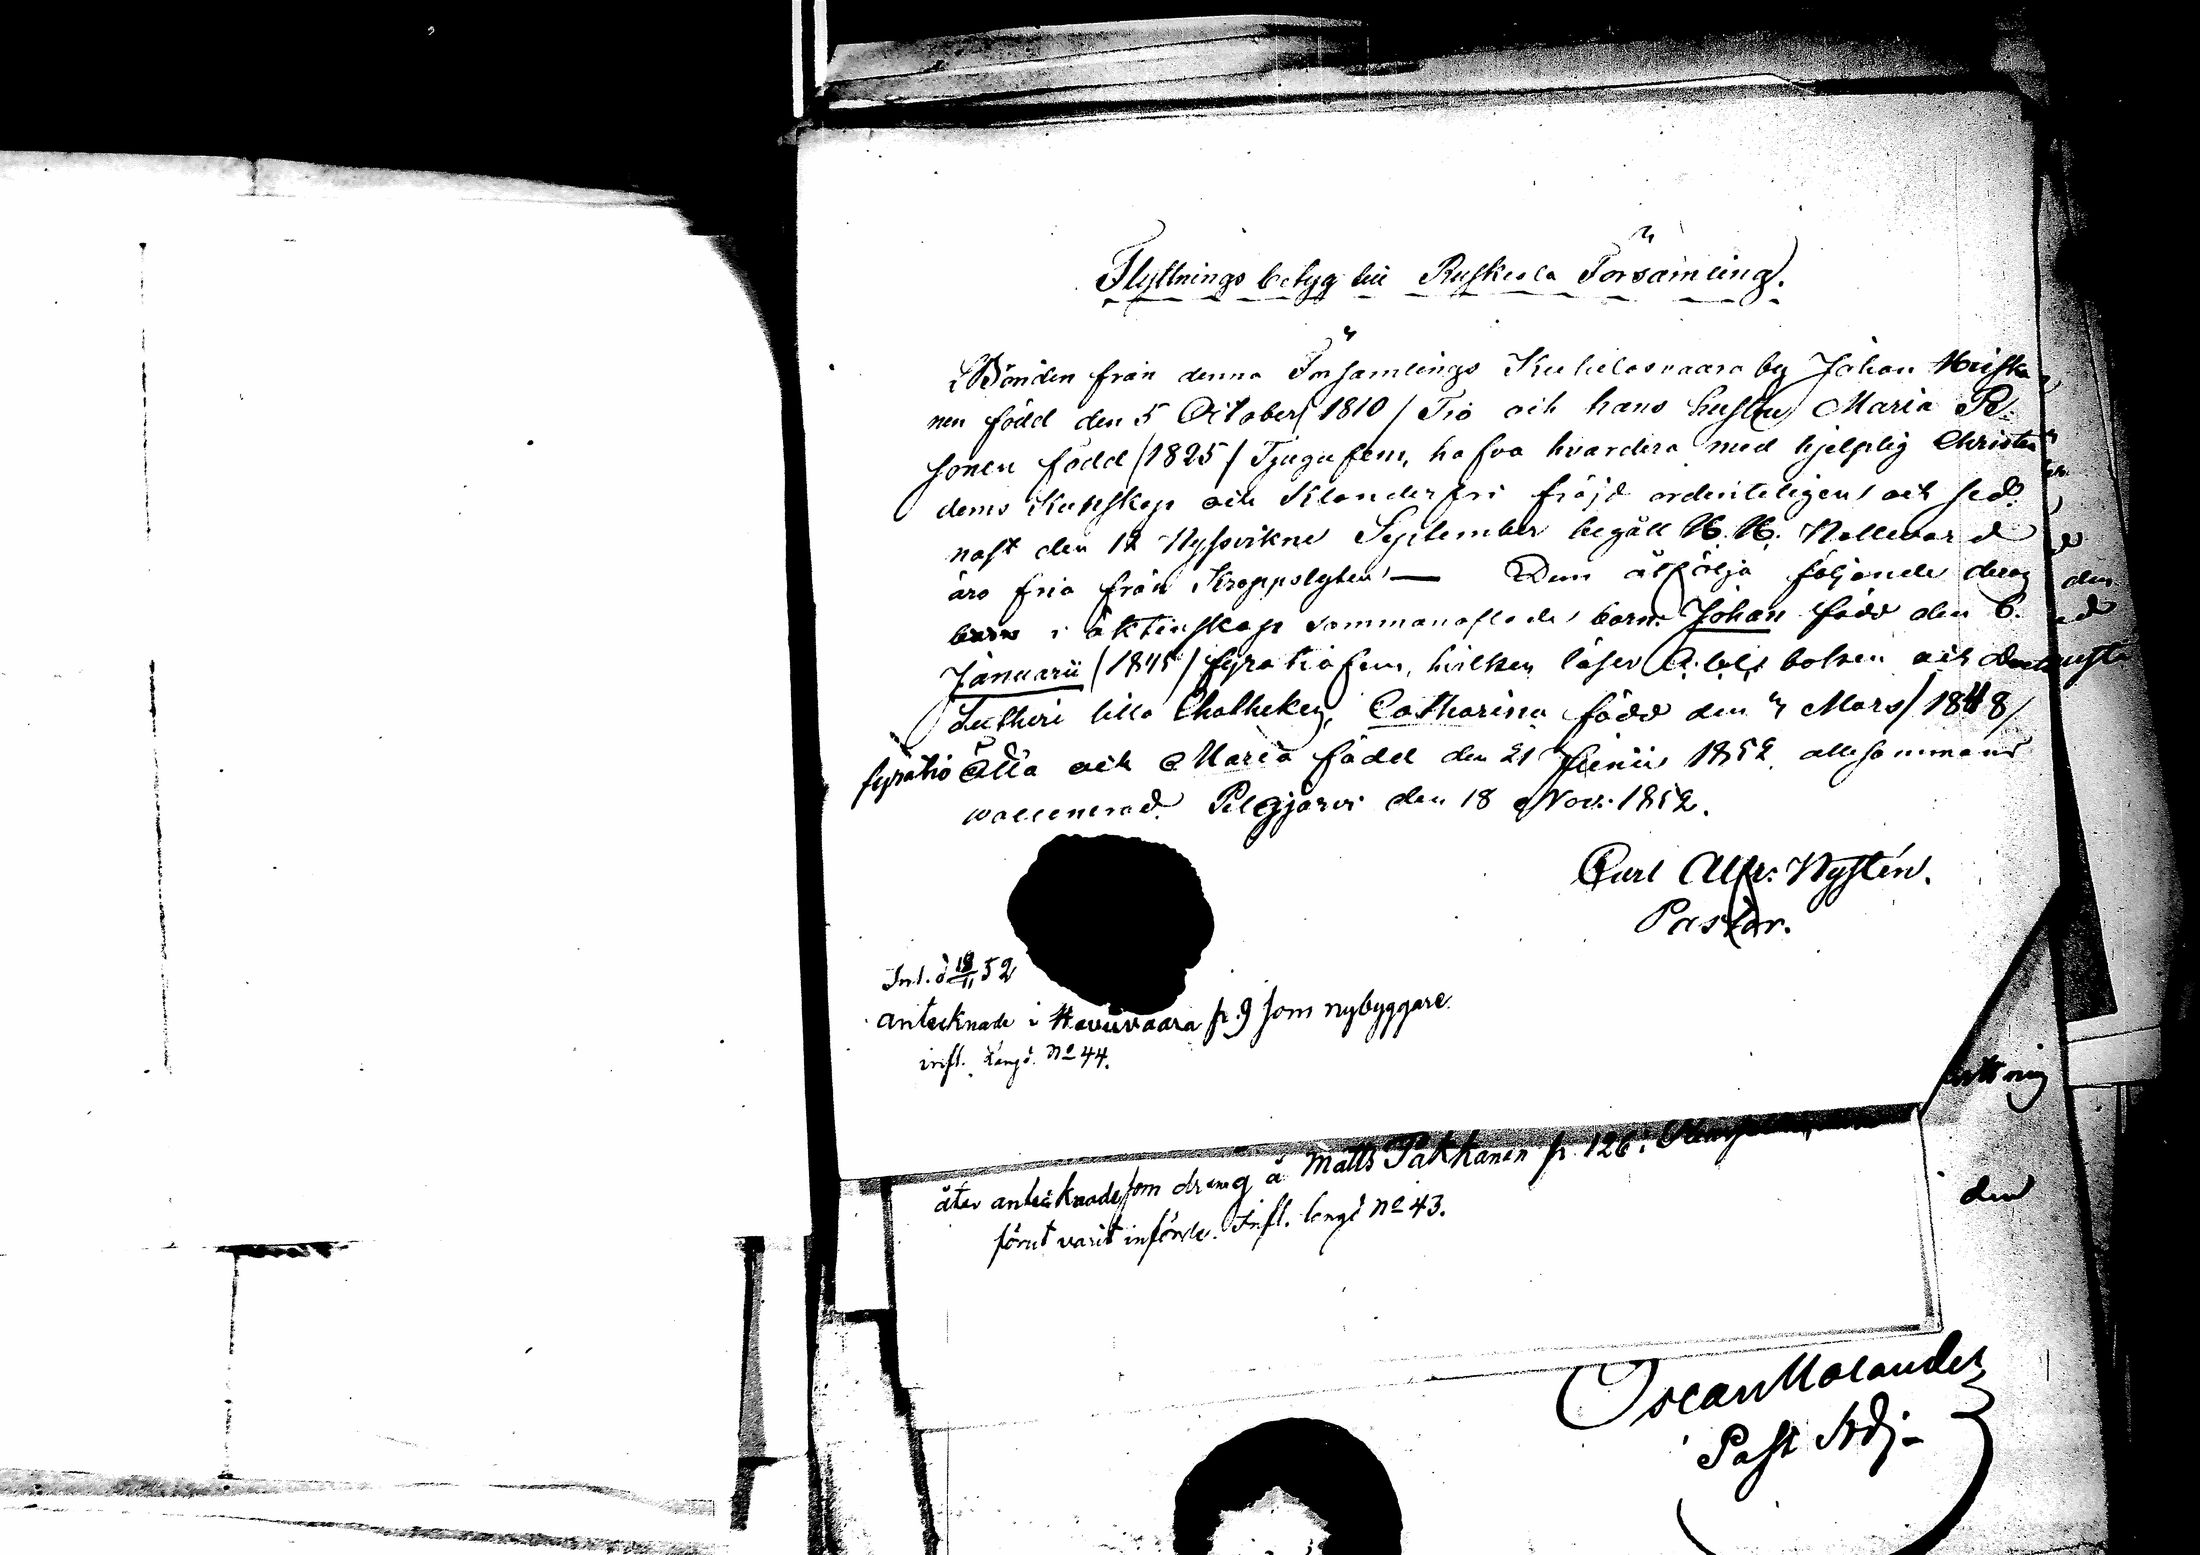 Flyttnings betyg till Ruskeala Församling.
Bonden från denna Församlings Kuhilasvaara by Johan Hiiska
nen född den 5 October / 1810 / Tio och hans hustru Maria Pe
sonen född / 1825 / Tjugufem, hafva hvardera med hjelplig Christen
doms Kunskap och Klanderfri fräjd ordenteligen och sed
nast den 12 Nyssvikne September begått H. H. Nattvard
äro fria från Kroppslyten — Dem åtfölja följande deras
i äktenskap sammanaflade barn: Johan född den 6.
Januarii / 1845 / fyratiofem, hvilken läser Abcboken och
Lutheri lilla Chatheken, Catharina född den 4 Mars / 1848 /
fyratio åtta och Maria född den 21 Junii 1852, allesammans
vaccinerad. Pelgjärvi den 18 Nov: 1852.
Carl Alfr: Nystén.
Pastor.
Inl. d 18/11 52
antecknade i Havuvaara p. 9 som nybyggare.
infl. Längd. No 44.
åter antecknade som dräng å Matts Pakkanen p. 126:
förut varit införde. Infl. längd No 43.
den
Oscar Molander
Past Adj-